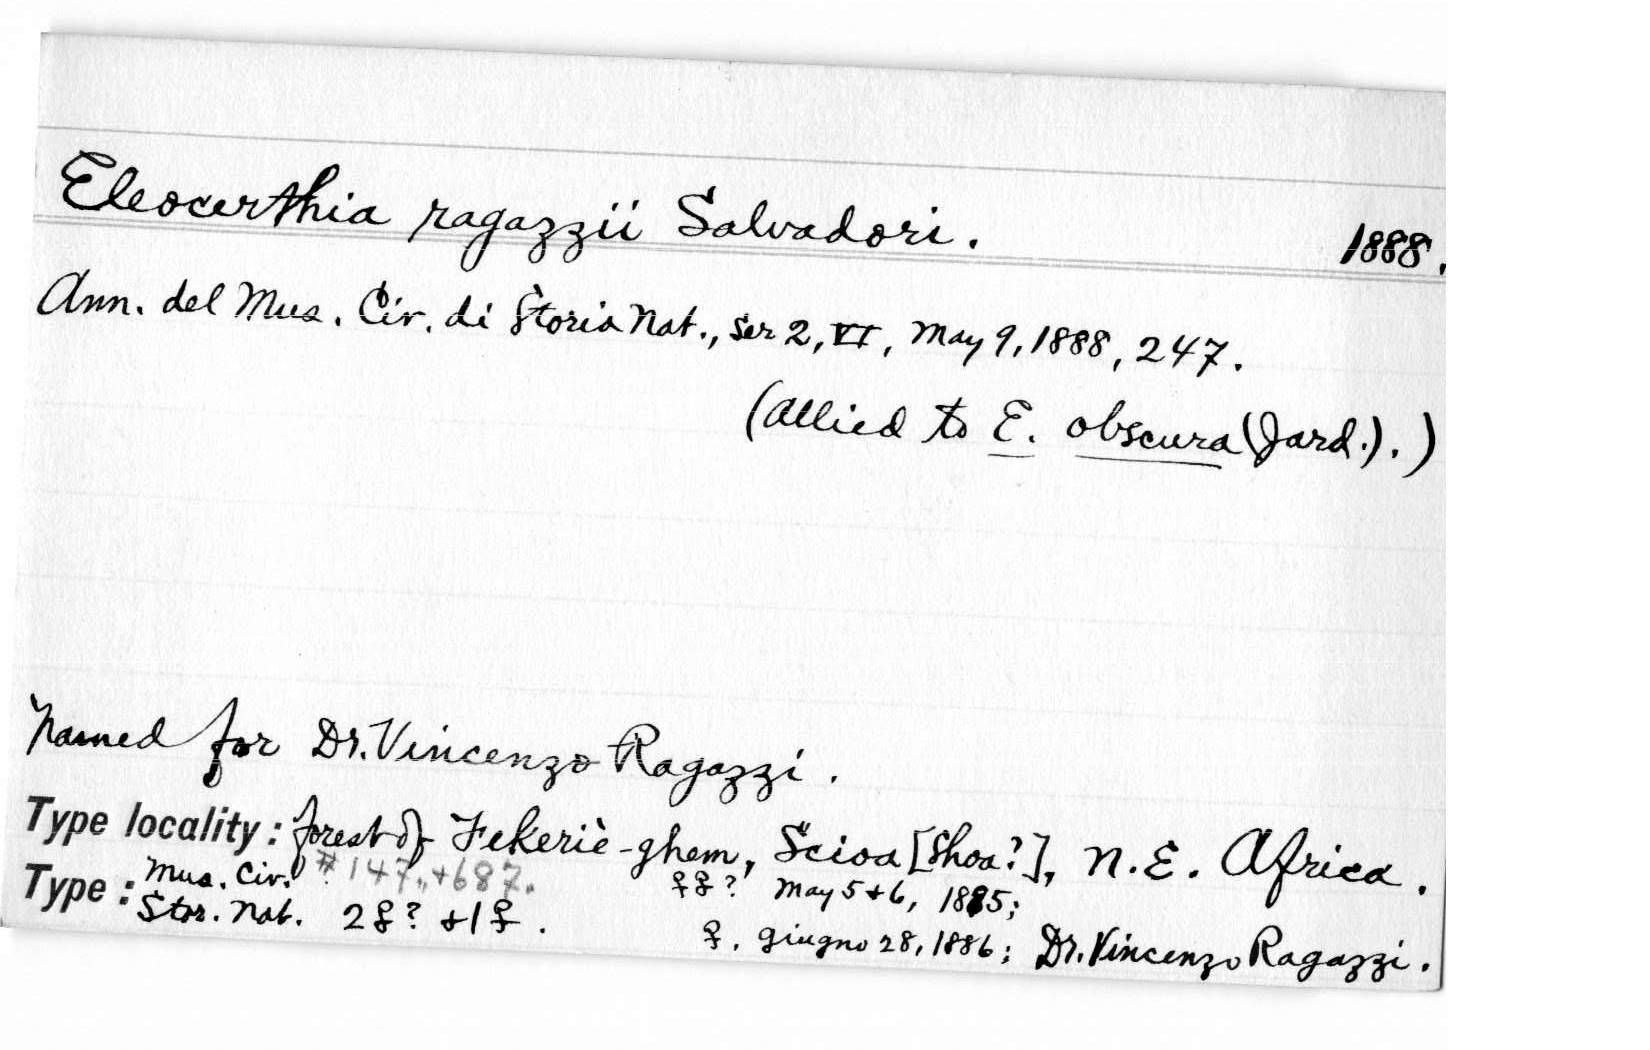 Eleocerthia ragazzii Salvadori. 1888.
Ann. del Mus. Civ. di Storia Nat., ser 2, VI, May 9, 1888, 247.
(allied to E. obscura (Jard.).)
Named for Dr. Vincenzo Ragazzi.
Type locality: forest of Fekeriè-ghem, Scioa [Shoa?], N.E. Africa.
Type: Mus. Civ. #147.,+687. ♀♀? May 5+6, 1885;
Stor. Nat. 2♀? +1♀. ♀. giugno 28, 1886; Dr. Vincenzo Ragazzi.